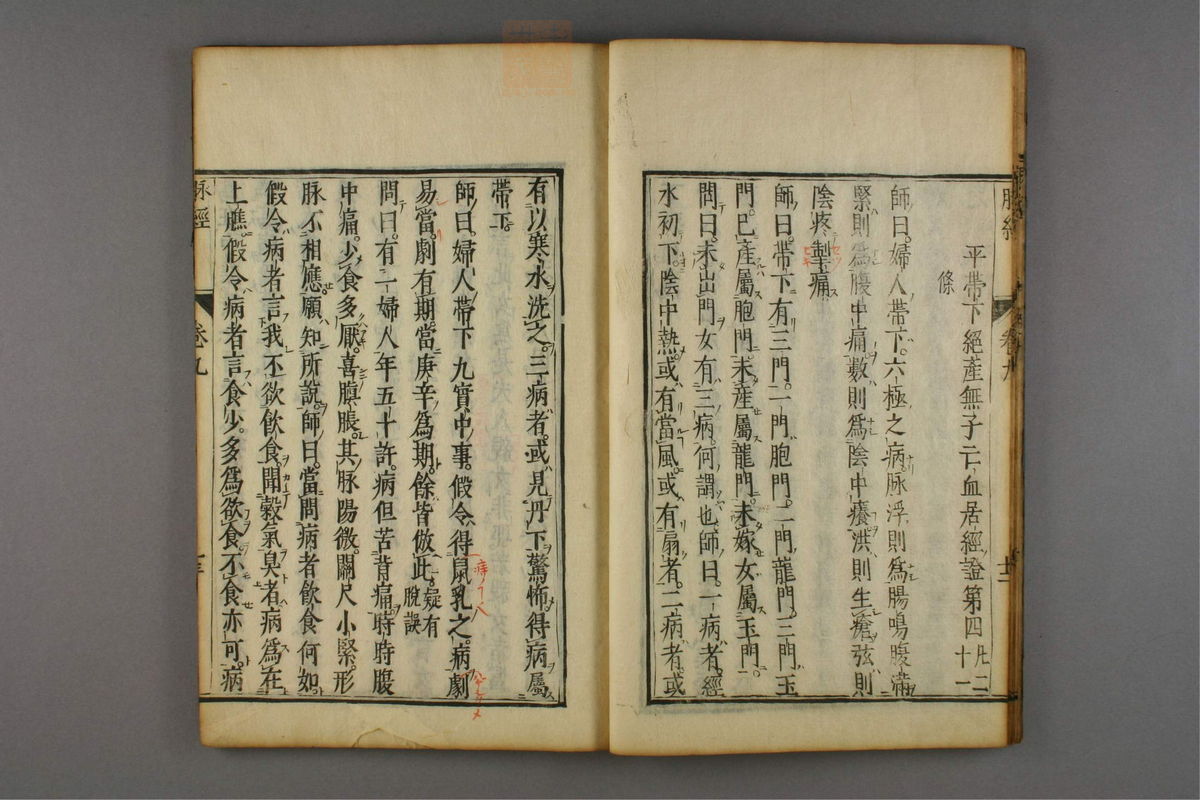 脉經
卷九
平帶下絕產無子亡血居經證第四
凡二十一條
師曰。婦人帶下。六極之病。脉浮則爲腸鳴腹滿
緊則爲腹中痛。數則爲陰中癢。洪則生瘡。弦則
陰疼掣痛
師曰。帶下有三門。一門胞門。二門龍門。三門玉
門。已產屬胞門。未產屬龍門。未嫁女屬玉門。
問曰。未出門女有三病。何謂也。師曰。一病者。經
水初下。陰中熱。或有當風。或有扇者。二病者。或
有以寒水洗之。三病者。或見丹下驚怖得病。屬
帶下。
師曰。婦人帶下九實中事。假令得鼠乳之。病劇
易。當劇有期。當庚辛爲期。餘皆倣此。疑有脫誤
問曰。有一婦人年五十許。病但苦背痛。時時腹
中痛。少食多厭。喜膹脹。其脉陽微。關尺小緊。形
脉不相應。願知所說。師曰。當問病者飲食何如。
假令病者言我不欲飲食聞穀氣臭者。病爲在
上膲。假令病者言食少。多爲欲食。不食亦可。病
脉經
卷九